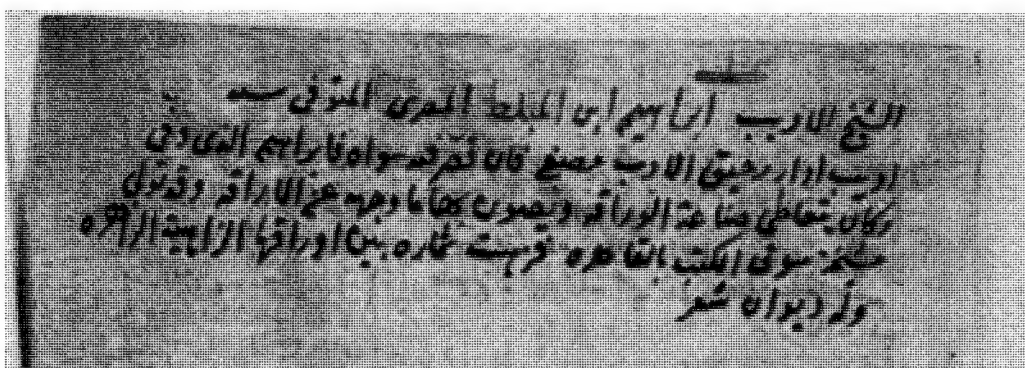 الشيخ الاديب ابراهيم ابن المبلط المصرى المتوفى سنة
اديب ادار رحيق الادب فان قصر فيه سواه فابراهيم الذى وفى
وكان يتعاطى صناعة الوراقه ويصون بها ما وجهه عن الاراقه وقد تولى
سوق الكتب بالقاهره فزهت ثماره بين اوراقها الزاهية الزاهره
وله ديوان شعر